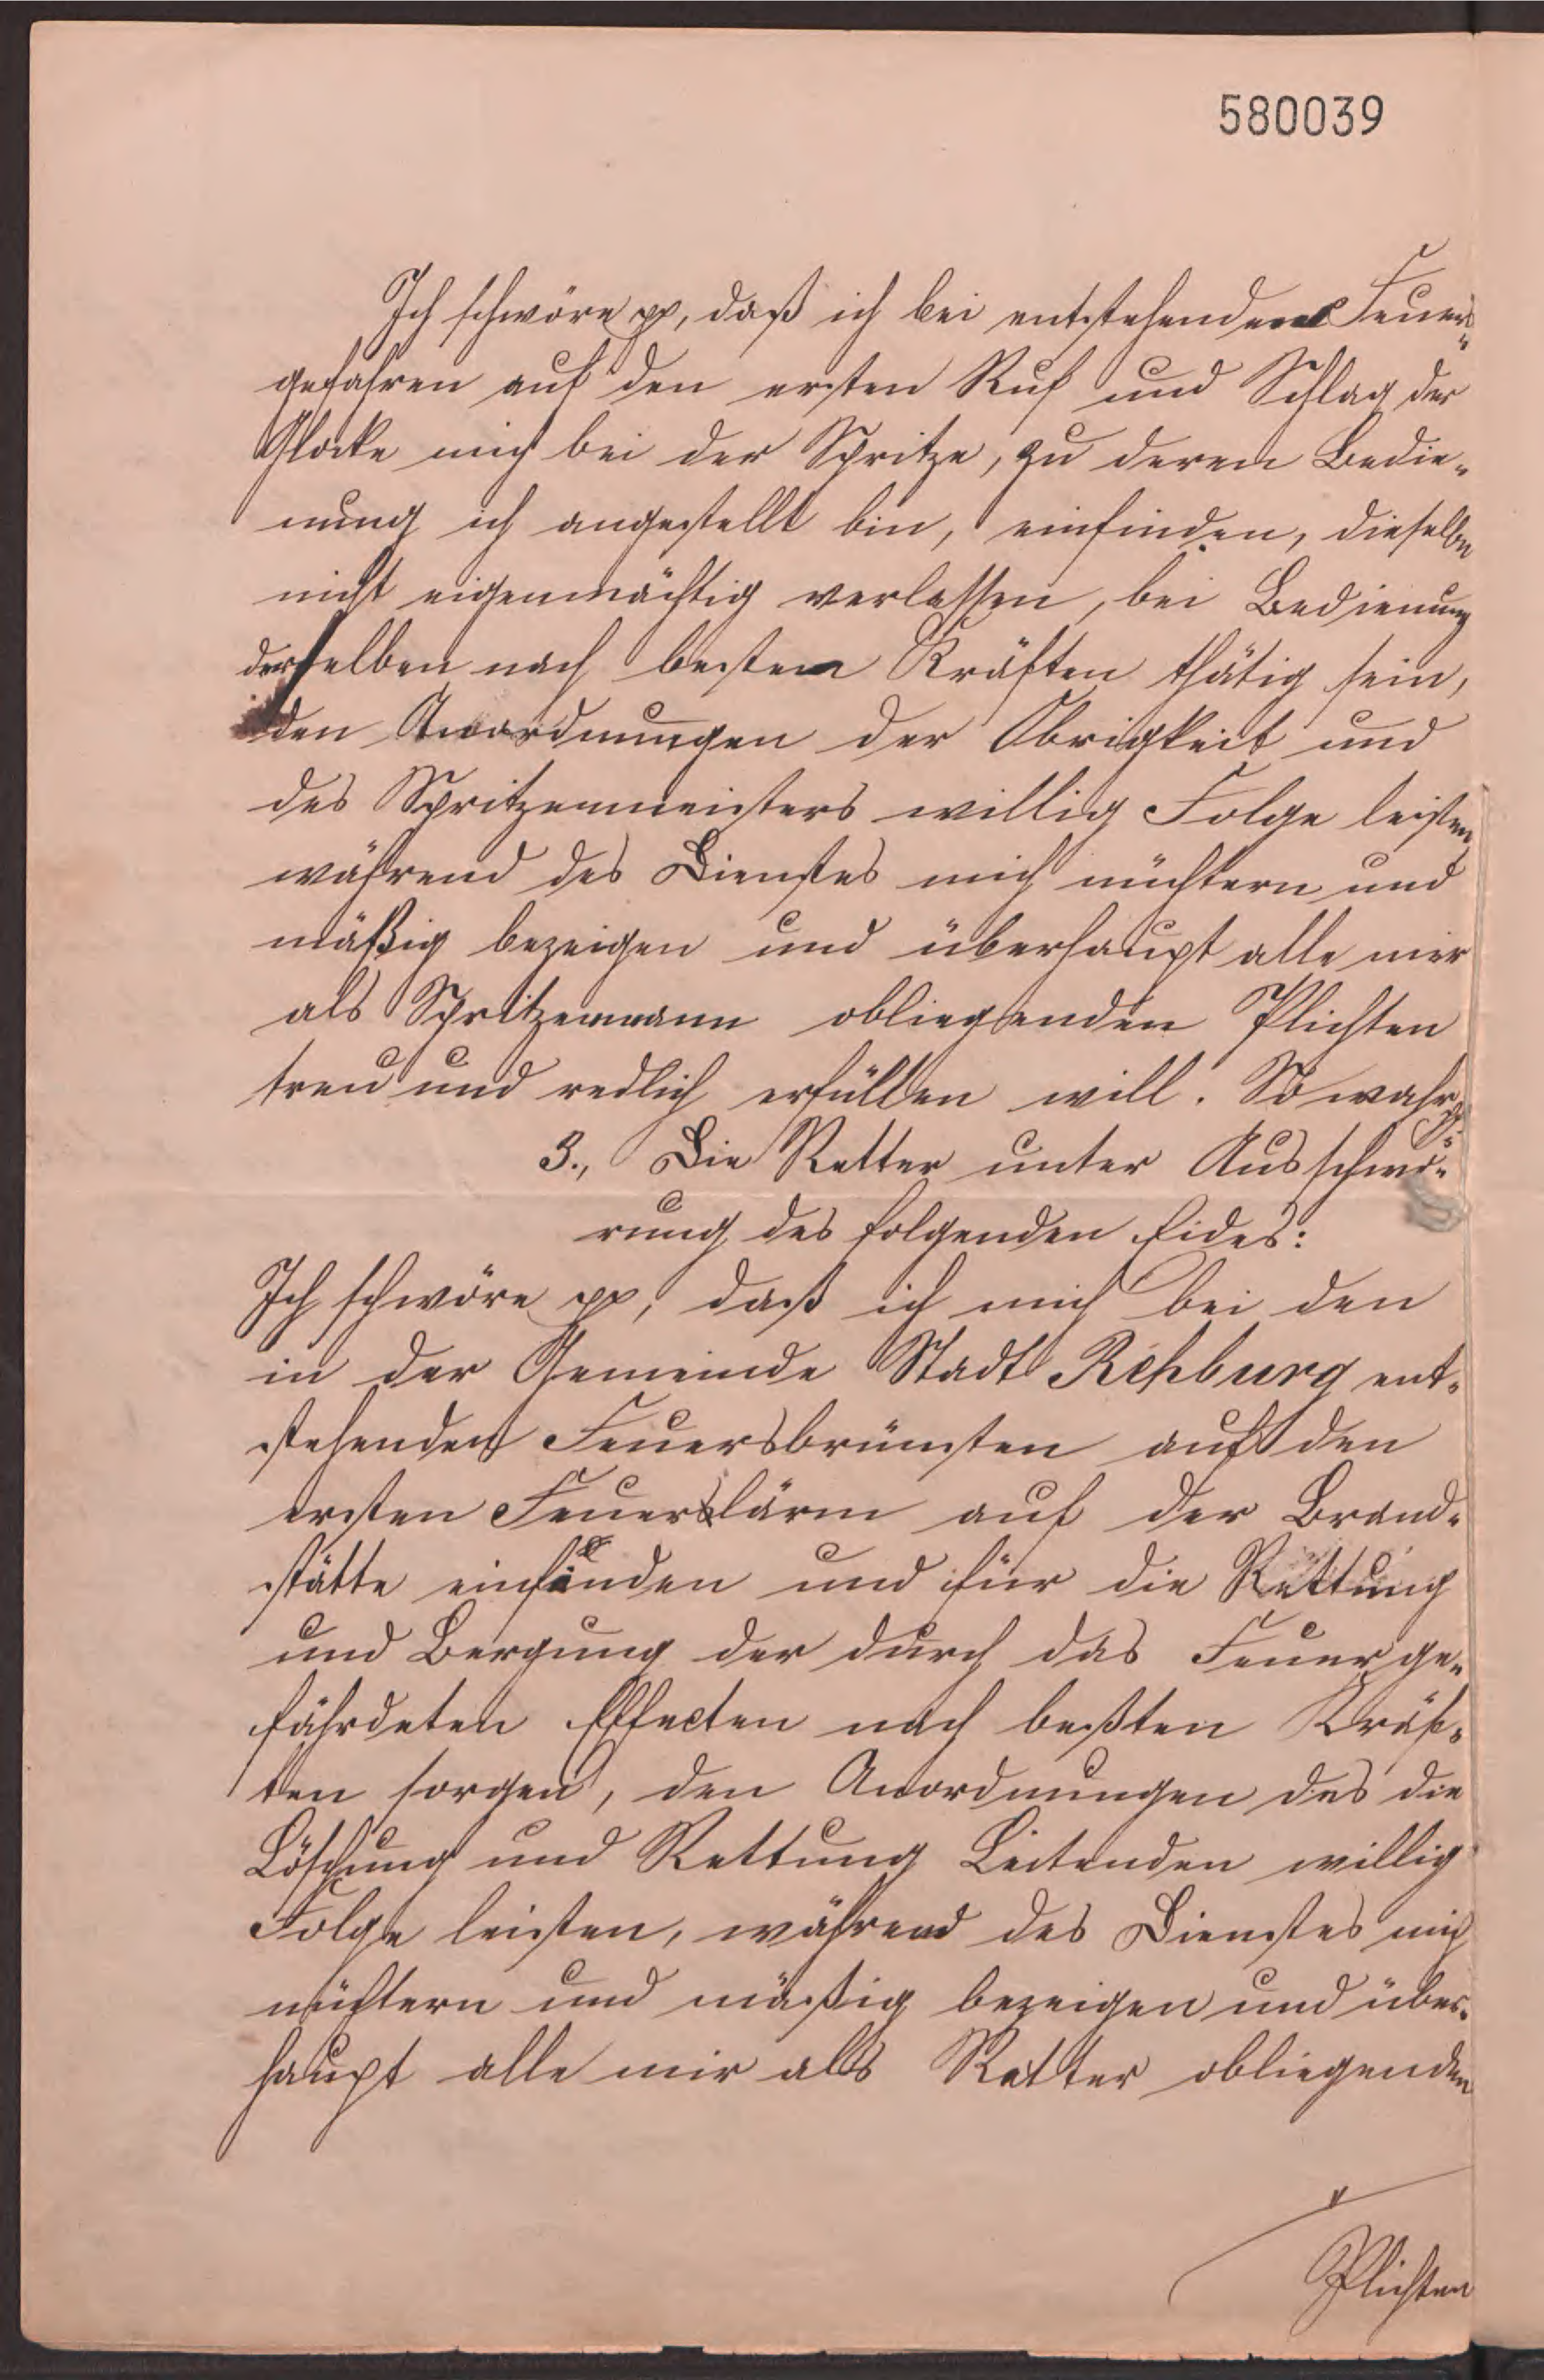 580039
Ich schwöre pp, daß ich bei entstehenden Feuers-
gefahren auf den ersten Ruf und Schlag der
Glocke mich bei der Spritze, zu deren Bedie-
nung ich angestellt bin, einfinden, dieselbe
nicht eigenmächtig verlassen, bei Bedienung
derselben nach besten Kräften thätig sein,
den Anordnungen der Obrigkeit und
des Spritzenmeisters willig Folge leisten
während des Dienstes mich nüchtern und
mäßig bezeigen und überhaupt alle mir
als Spritzenmann obliegenden Plichten
treu und redlich erfüllen will. So wahr
3., Die Retter unter Ausschwö-
rung des folgenden Eides:
Ich schwöre pp, daß ich mich bei den
in der Gemeinde Stadt Rehburg ent-
stehenden Feuersbrünsten auf den
ersten Feuerlärm auf der Brand-
stätte einfinden und für die Rettung
und Bergung der durch das Feuer ge-
fährdeten Effecten nach beßten Kräf-
ten sorgen, den Anordnungen des die
Löschung und Rettung Leitenden willig
Folge leisten, während des Dienstes mich
nüchtern und mäßig bezeigen und über-
haupt alle mir als Retter obliegenden
Plichten